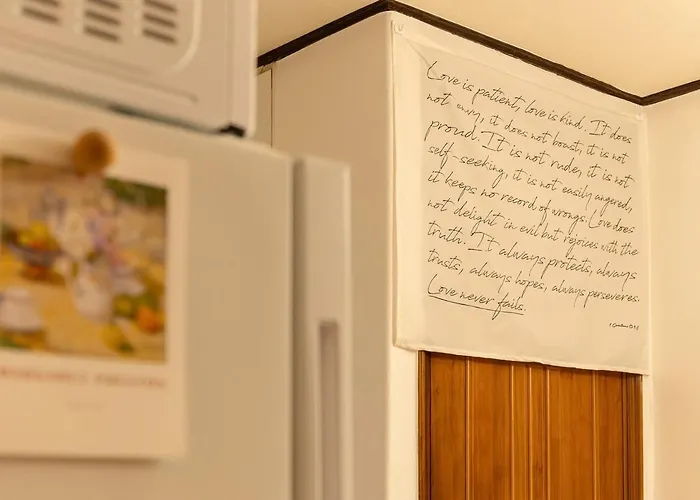 Love is patient, love is kind. It does
not envy, it does not boast, it is not
proud. It is not rude, it is not
self-seeking, it is not easily angered,
it keeps no record of wrongs. Love does
not delight in evil but rejoices with the
truth. It always protects, always
trusts, always hopes, always perseveres.
Love never fails.